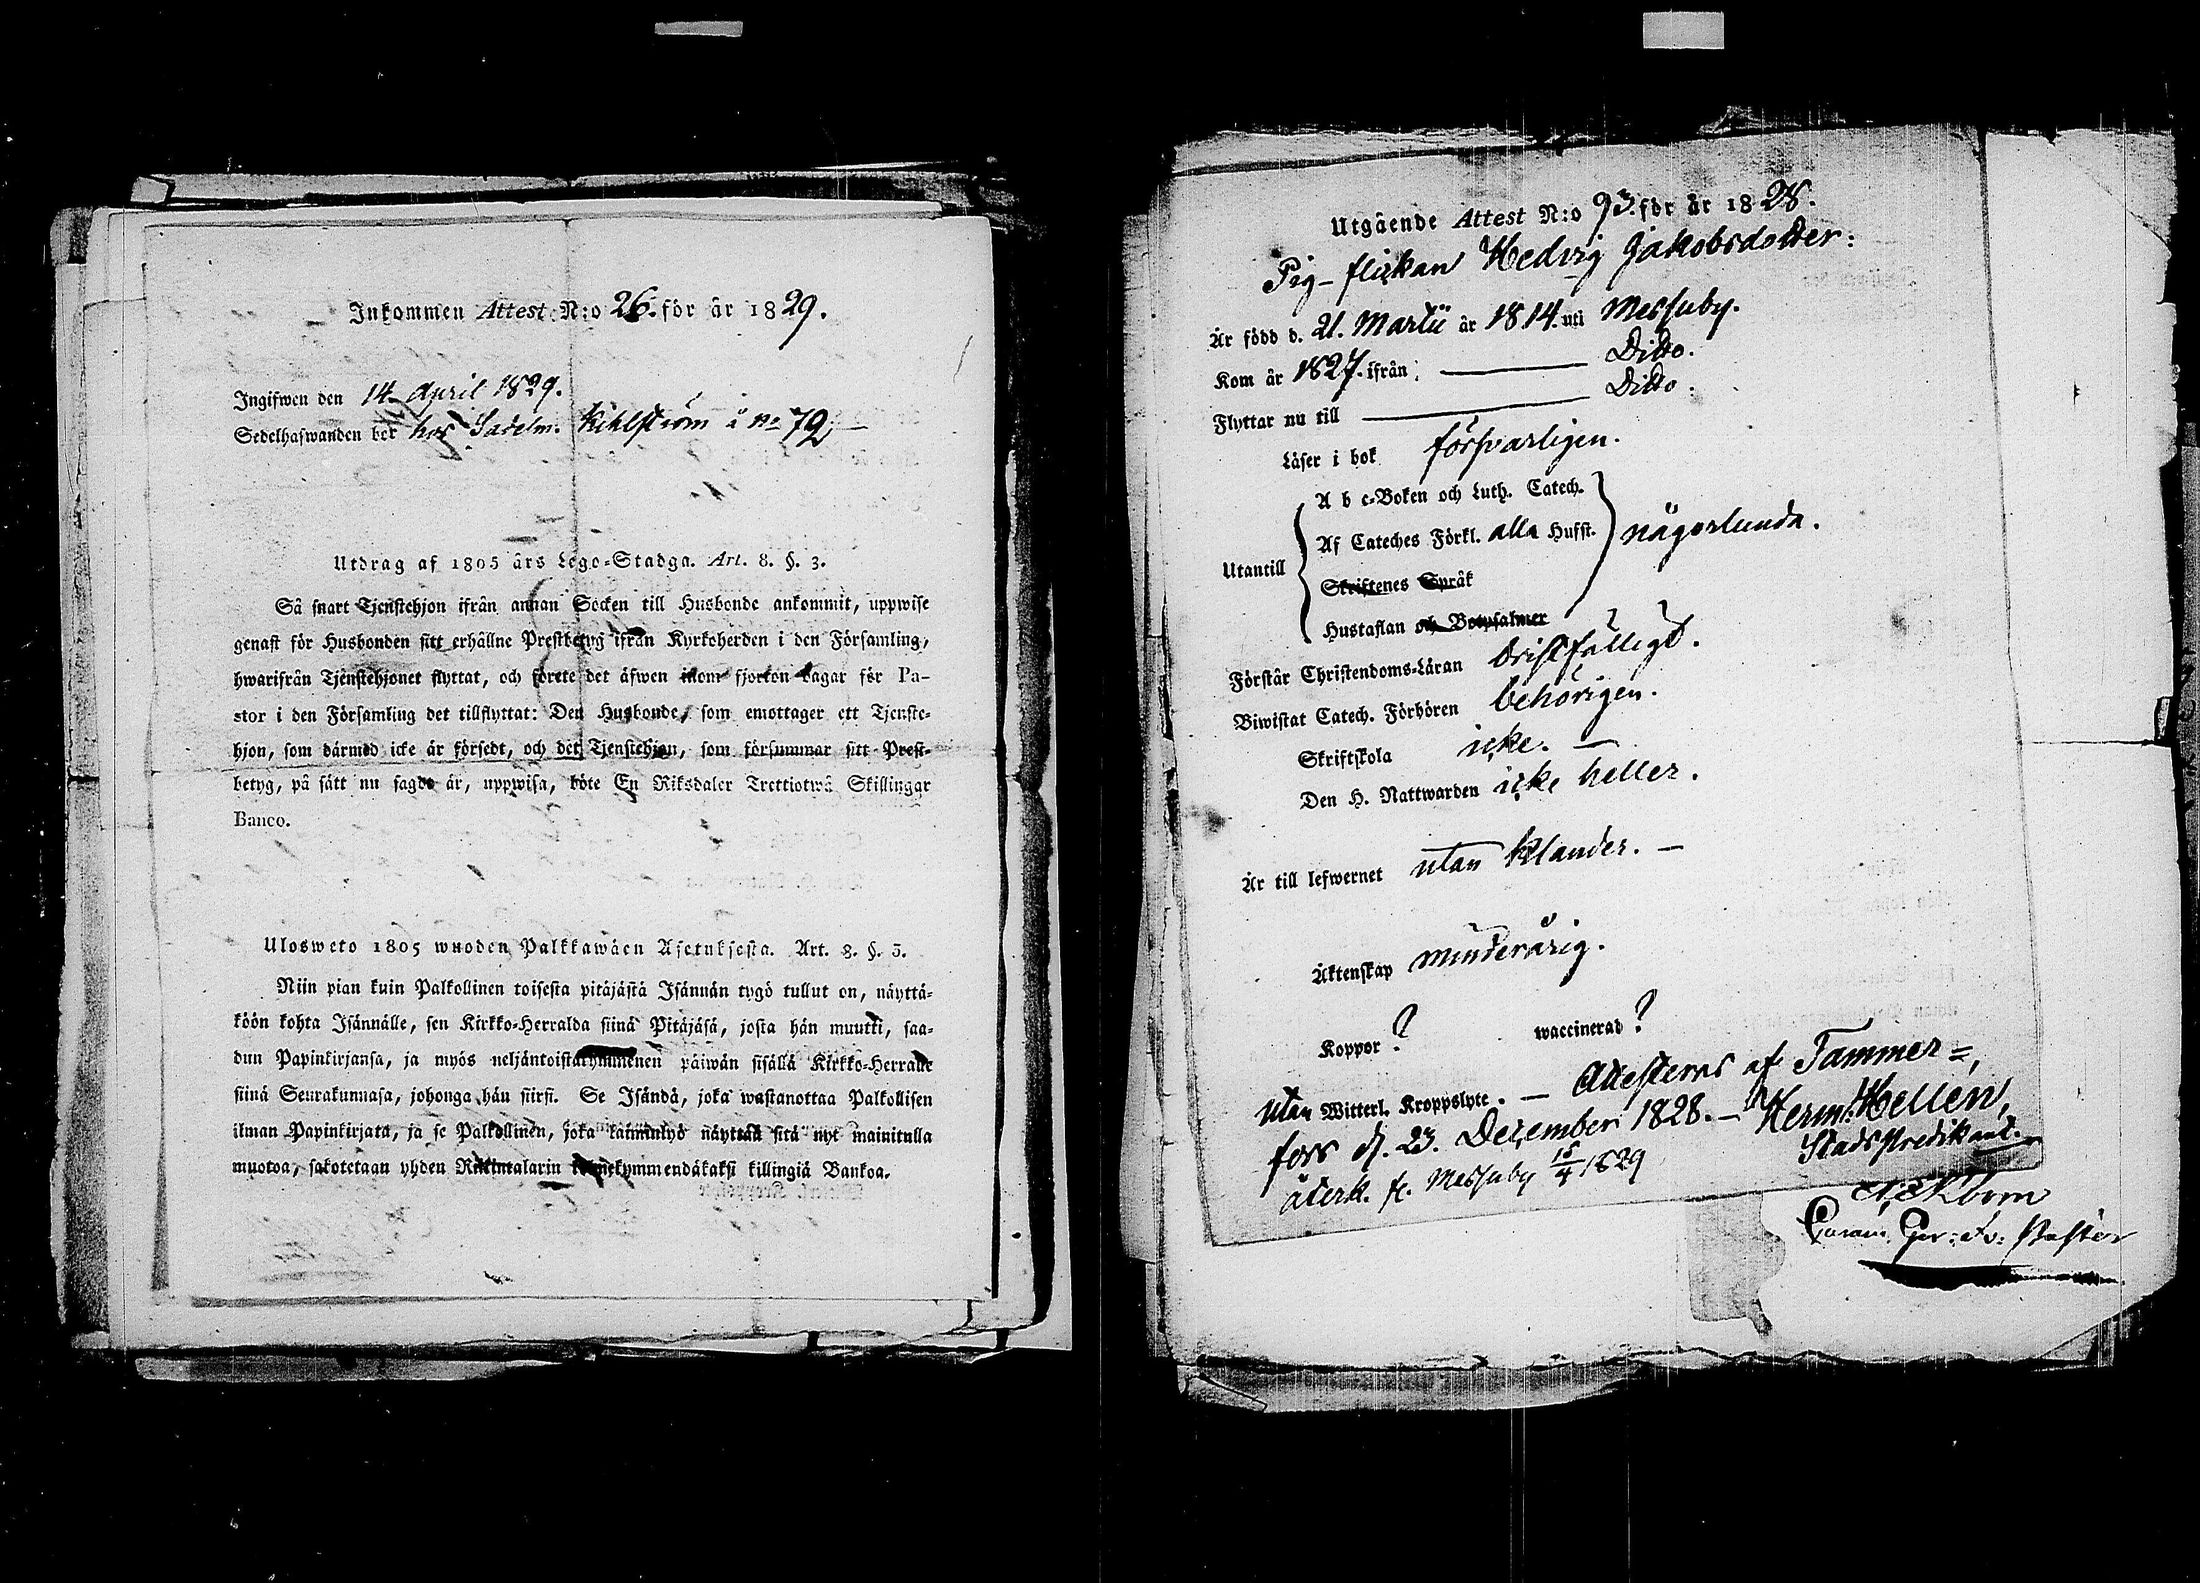 Inkommen Attest N:o 26. för år 1829.
Ingifwen den 14 April 1829.
Sedelhafwanden bor hos Sadelm. Kihlström å No 79
Utdrag af 1805 års Lego-Stadga. Art. 8. §. 3.
Så snart Tjenstehjon ifrån annan Socken till Husbonde ankommit, uppwise
genast för Husbonden sitt erhållne Prestbetyg ifrån Kyrkoherden i den Församling,
hwarifrån Tjenstehjonet flyttat, och förete det äfwen inom fjorton dagar för Pa-
stor i den Församling det tillflyttat: Den Husbonde, som emottager ett Tjenste-
hjon, som därmed icke är försedt, och det Tjenstehjon, som försummar sitt Prest-
betyg, på sätt nu sagdt är, uppwisa, böte En Riksdaler Trettiotwå Skillingar
Banco.
Ulosweto 1805 wuoden Palkkawäen Asetuksesta. Art. 8. §. 3.
Niin pian kuin Palkollinen toisesta pitäjästä Isännän tygö tullut on, näyttä-
köön kohta Isännälle, sen Kirkko-Herralda siinä Pitäjäsä, josta hän muutti, saa-
dun Papinkirjansa, ja myös neljäntoistakymmenen päiwän sisällä Kirkko-Herralle
siinä Seurakunnasa, johonga hän siirsi. Se Isändä, joka wastanottaa Palkollisen
ilman Papinkirjata, ja se Palkollinen, joka laiminlyö näyttää sitä nyt mainitulla
muotoa, sakotetaan yhden Riikintalarin kolmekymmendäkaksi killingiä Bankoa.
Utgående Attest N:o 93. för år 1828.
Pig-flickan Hedvig Jakobsdotter:
Är född d. 21. Martii år 1814. uti Messuby.
Kom år 1827. ifrån Ditto.
Flyttar nu till Ditto.
Läser i bok försvarligen.
A b c-Boken och Luth. Catech.
Af Cateches Förkl. alla Hufst. någorlunda.
Utantill
Skriftenes Språk
Hustaflan och Botpsalmer
Förstår Christendoms-Läran bristfälligt.
Biwistat Catech. Förhören behörigen.
Skriftskola icke. —
Den H. Nattwarden icke heller.
Är till lefwernet utan klander. —
Äktenskap minderårig.
Koppor ? waccinerad ?
utan Witterl. Kroppslyte. — Attesteras af Tammer=
fors d. 23. December 1828. — Herm. Hellén,
Stadspredikant.
återk. fr. Messuby 15/4 1829